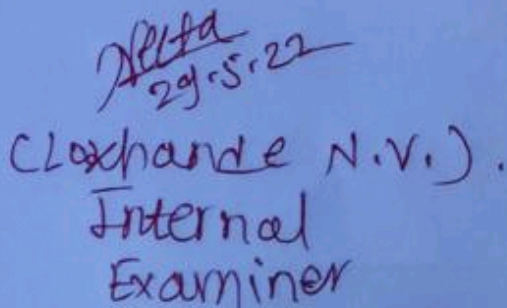 29.5.22
(Loxhande N.V.).
Internal
Examiner